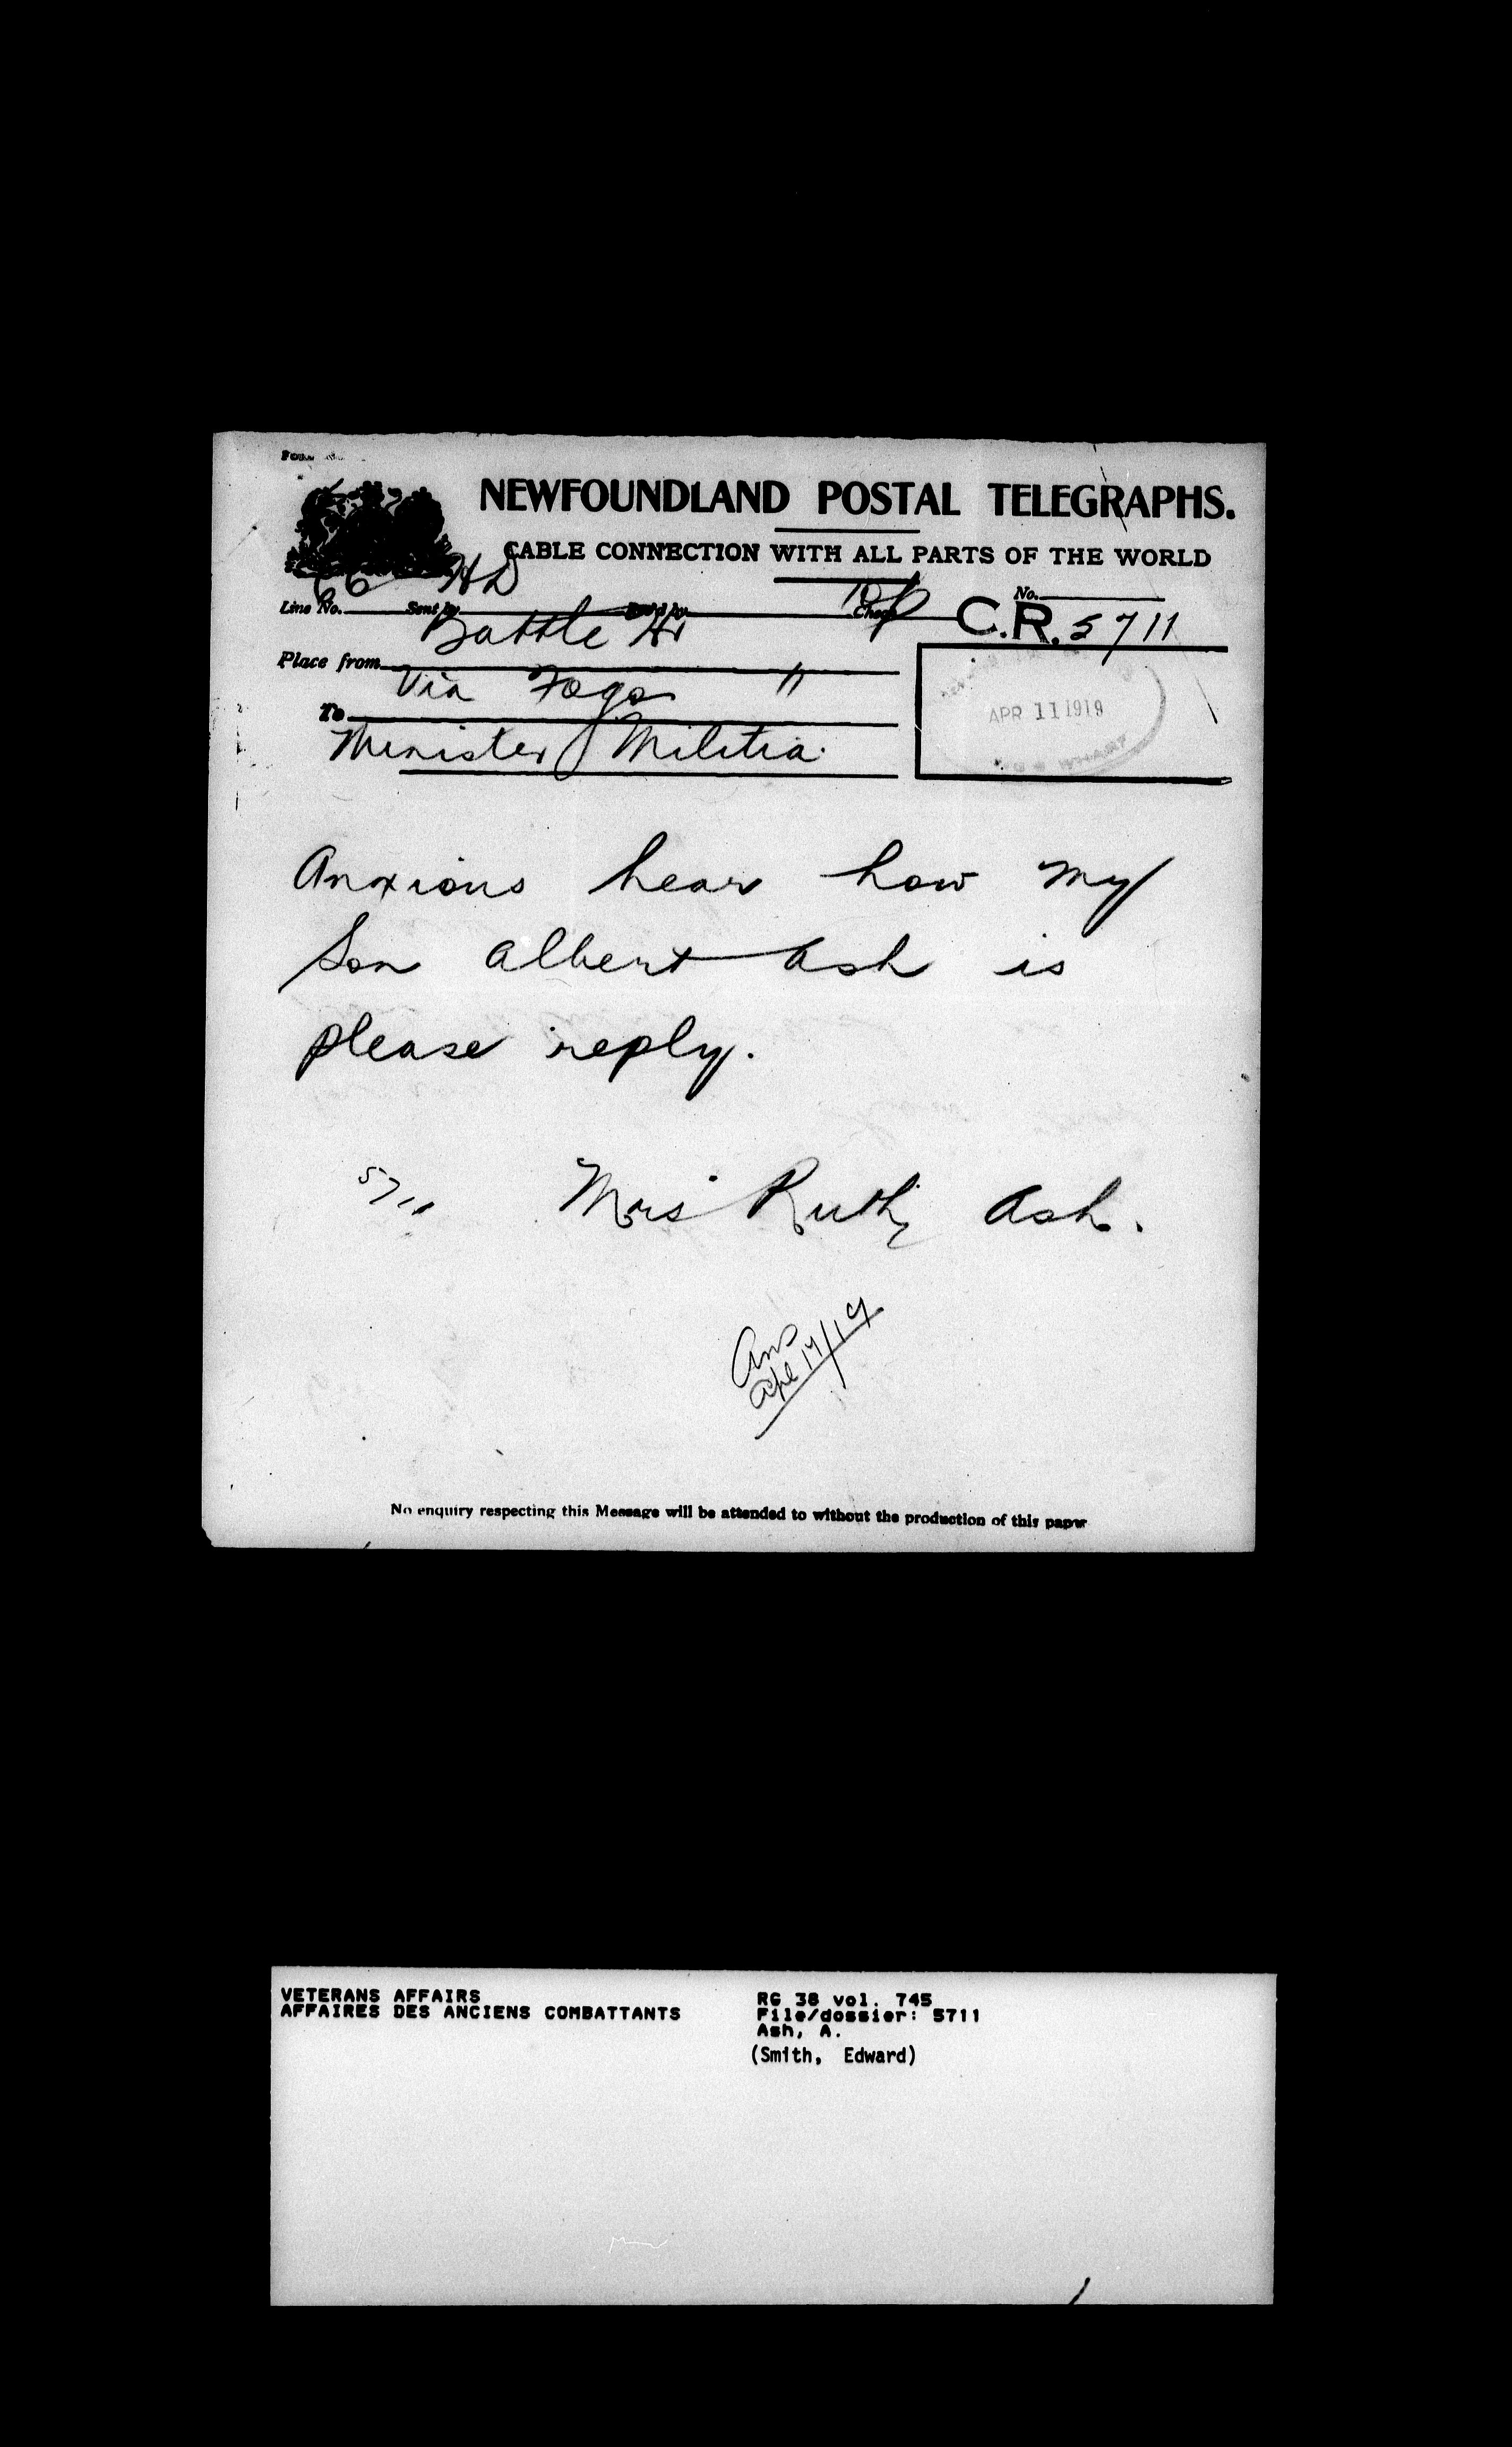 NEWFOUNDLAND POSTAL TELEGRAPHS.
CABLE CONNECTION WITH ALL PARTS OF THE WORLD
66 HD
Line No. Sent by Rec'd by Check No.
C.R. 5711
Battle Hr
Place from
Via Fogo 11
To
APR 11 1919
Minister Militia.
Anxious hear how my
Son albert ash is
please reply.
5711 Mrs Ruth Ash.
Ans
Apl 17/19
No enquiry respecting this Message will be attended to without the production of this paper
VETERANS AFFAIRS RG 38 vol. 745
AFFAIRES DES ANCIENS COMBATTANTS File/dossier: 5711
Ash, A.
(Smith, Edward)